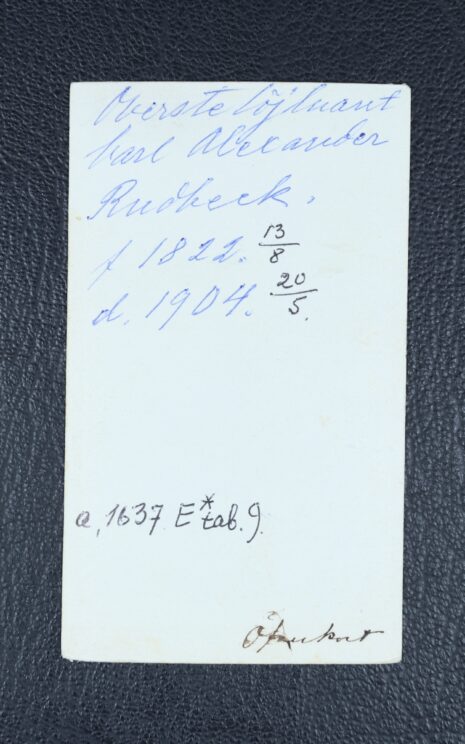 Överstelöjtnant
Carl Alexander
Rudbeck.
f 1822. 13/8
d. 1904. 20/5.
a, 1637 E* tab. 9.